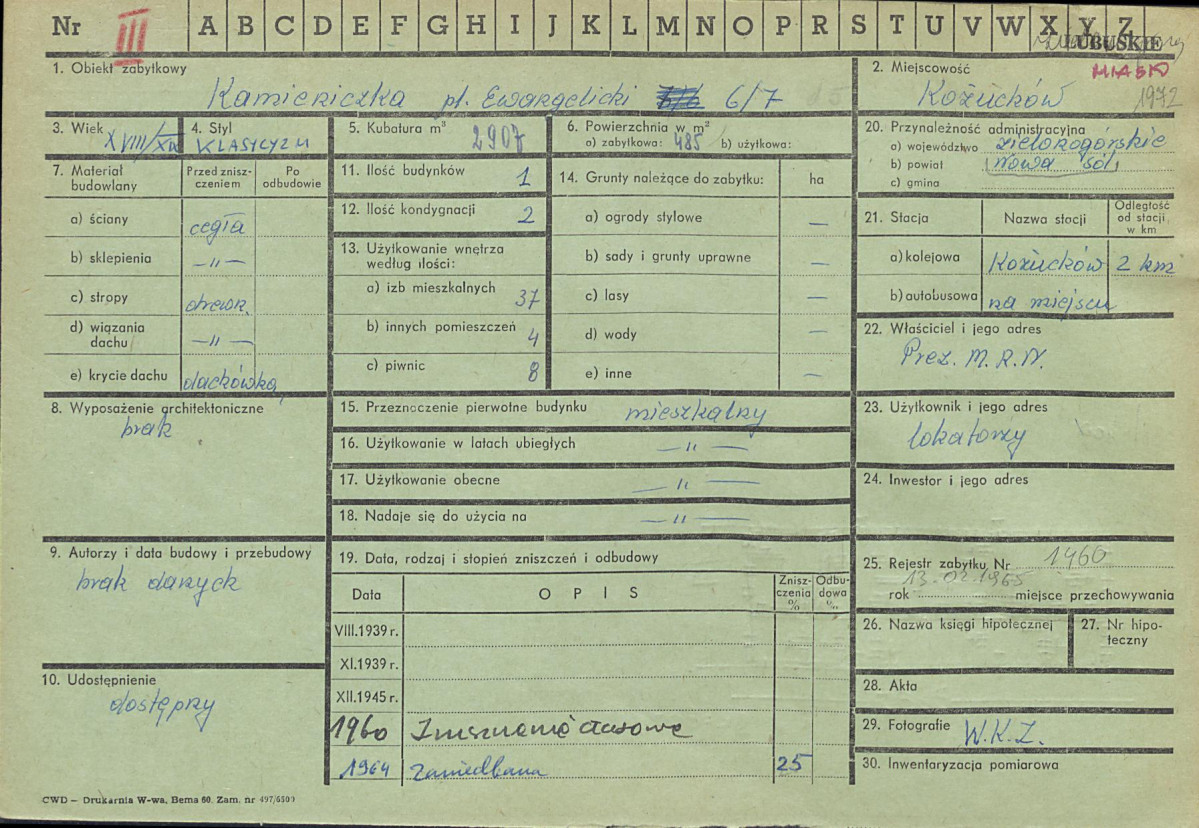 Nr III A B C D E F G H I J K L M N O P R S T U V W X Y Z
LUBUSKIE
MIASTO
1. Obiekt zabytkowy
Kamieniczka pl. Ewangelicki 6/7
2. Miejscowość
Kożuchów 1972
3. Wiek XVIII/XIX
4. Styl KLASYCYZM
5. Kubatura m³ 2907
6. Powierzchnia w m²
a) zabytkowa: 485 b) użytkowa:
7. Materiał budowlany
Przed zniszczeniem
Po odbudowie
a) ściany cegła
b) sklepienia —"—
c) stropy drewn.
d) wiązania dachu —"—
e) krycie dachu dachówka
8. Wyposażenie architektoniczne
brak
9. Autorzy i data budowy i przebudowy
brak danych
10. Udostępnienie
dostępny
11. Ilość budynków 1
12. Ilość kondygnacji 2
13. Użytkowanie wnętrza
według ilości:
a) izb mieszkalnych 37
b) innych pomieszczeń 4
c) piwnic 8
14. Grunty należące do zabytku: ha
a) ogrody stylowe —
b) sady i grunty uprawne —
c) lasy —
d) wody —
e) inne —
15. Przeznaczenie pierwotne budynku mieszkalny
16. Użytkowanie w latach ubiegłych —"—
17. Użytkowanie obecne —"—
18. Nadaje się do użycia na —"—
19. Data, rodzaj i stopień zniszczeń i odbudowy
Data OPIS Zniszczenia % Odbudowa %
VIII.1939 r.
XI.1939 r.
XII.1945 r.
1960
1964 zaniedbana 25
20. Przynależność administracyjna
a) województwo zielonogórskie
b) powiat (Nowa Sól)
c) gmina
21. Stacja Nazwa stacji Odległość od stacji w km
a) kolejowa Kożuchów 2 km
b) autobusowa na miejscu
22. Właściciel i jego adres
Prez. M.R.N.
23. Użytkownik i jego adres
lokatorzy
24. Inwestor i jego adres
25. Rejestr zabytku Nr 1960
rok 13.02.1965 miejsce przechowywania
26. Nazwa księgi hipotecznej
27. Nr hipoteczny
28. Akta
29. Fotografie W.K.Z.
30. Inwentaryzacja pomiarowa
CWD — Drukarnia W-wa, Bema 60. Zam. nr 497/6509